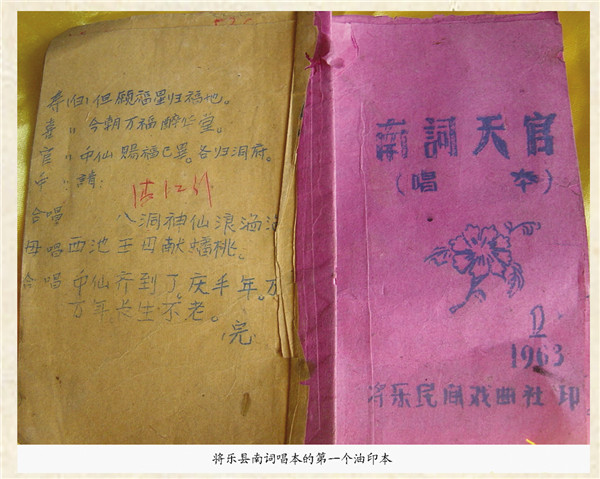 寿(白)但愿福星归福地。
喜〃今朝万福酔华堂。
官〃中仙赐福已罢。各归洞府。
中〃請
合唱 八洞神仙浪滔
母唱西池王母献蟠桃。
合唱中仙齐到了庆半年。万
万年长生不老。
完
南詞天官
(唱本)
1963
将乐民间戏曲社印
将乐县南词唱本的第一个油印本